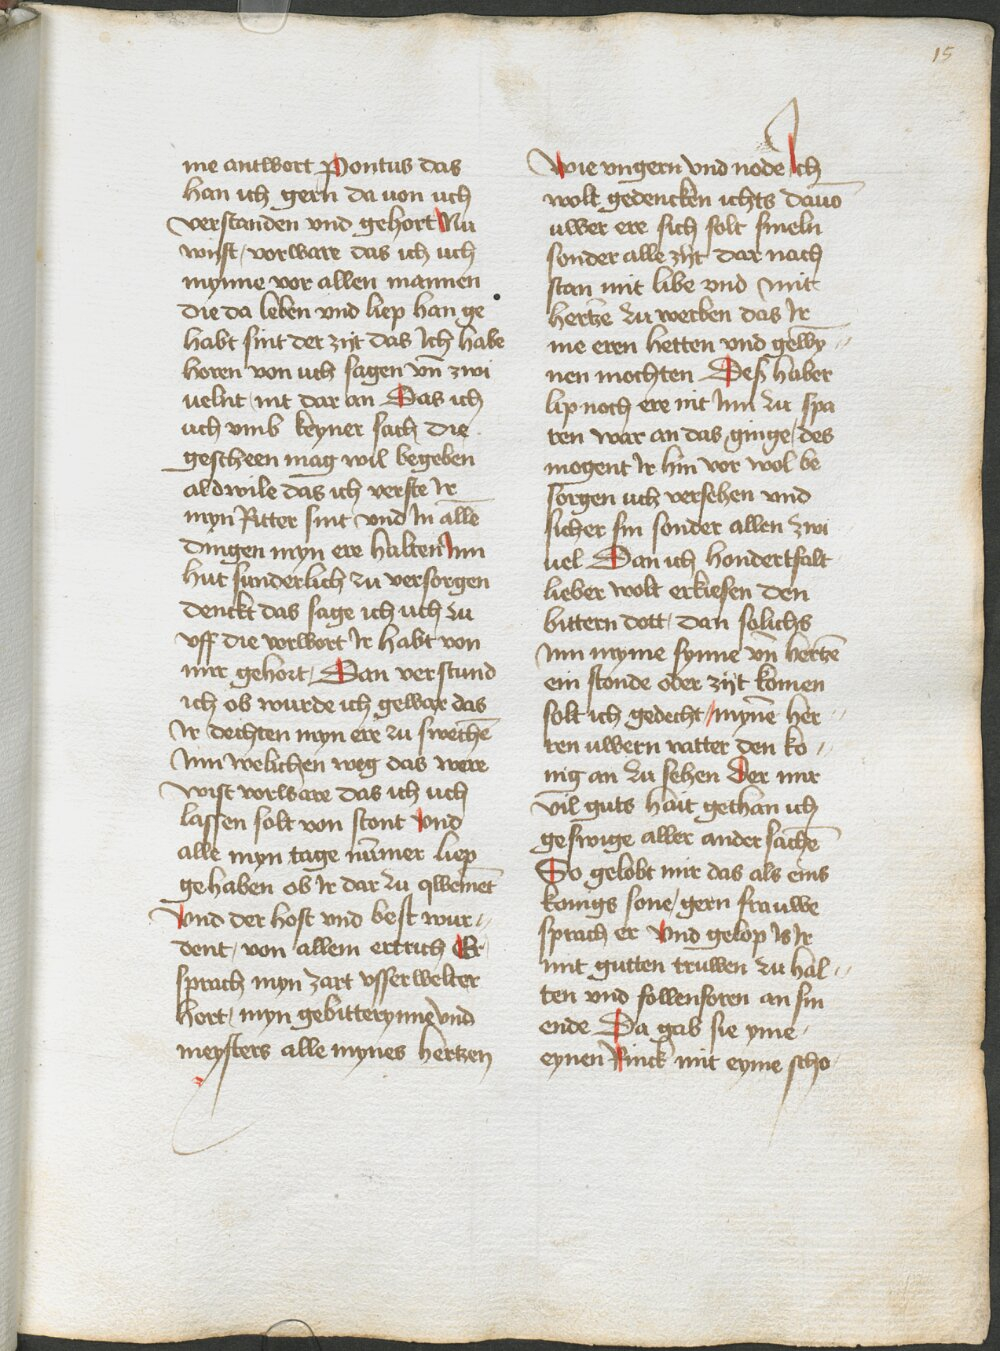 15
me antwort Pontus das
han ich gern da uon uch
verstanden vnd gehort Nu
wist / vorware das ich uch
mynne vor allen mannen
die da leben vnd liep han ge
habt sint der zijt das Ich habe
horen von uch sagen vn̄ zwi
uelnt nit dar an Das ich
uch vmb keyner sach die
gescheen mag wil begeben
aldwile das ich verste Ir
myn Ritter sint vnd In alle
dingen myn ere halten Inn
hut sunderlich zu versorgen
denckt das sage ich uch zu
vff die vorwort Ir habt von
mir gehort / Dan verstund
ich ob wurde ich gewar das
Ir dechten myn ere zu swechē
Inn welichen weg das were
wist vorware das ich uch
lassen solt von stont vnd
alle myn tage nūmer liep
gehaben ob Ir dar zu qwemēt
vnd der host vnd best wur //
dent / von allem ertrich Er
sprach myn zart vsserwelter
hort / myn gebitterynne vnd
meysters alle mynes hertzen
Wie vngern vnd node Ich
wolt gedencken ichts dauō
uwer ere sich solt smeln
sonder alle zijt dar nach
stan mit libe vnd mit
hertze zu werben das Ir
me eren hetten vnd gewy //
nen mochten Deß haber
lip noch ere nit Inn zu spa
ren war an das ginge / des
mogent Ir hin vor wol be
sorgen uch versehen vnd
sicher sin sonder allen zwi
uel Dan ich hondertfalt
lieber wolt erkiesen den
bittern dott / dan solichs
Inn myme synne vn̄ hertzē
ein stonde oder zijt komen
solt ich gedecht / mynē her //
ren uwern vatter den ko //
nig an zu sehen Der mir
vil guts hait gethan ich
geswige aller ander sachē
So gelobt mir das als eins
konigs sone / gern frauwe
sprach er Vnd gelop is Ir
mit gutten truwen zu hal //
ten vnd follenforen an sin
ende Da gab sie yme
eynen Rinck mit eyme scho